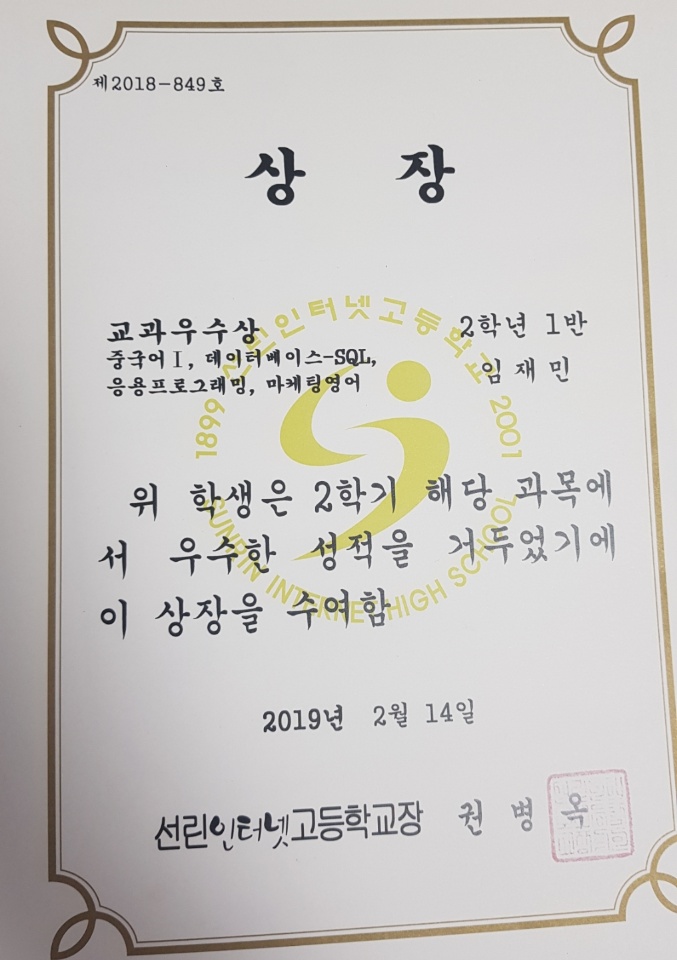 제2018-849호
상 장
교과우수상
중국어Ⅰ, 데이터베이스-SQL,
응용프로그래밍, 마케팅영어
2학년 1반
임재민
선린인터넷고등학교
1899
2001
SUNRIN INTERNET HIGH SCHOOL
위 학생은 2학기 해당 과목에
서 우수한 성적을 거두었기에
이 상장을 수여함
2019년 2월 14일
선린인터넷고등학교장 권병옥